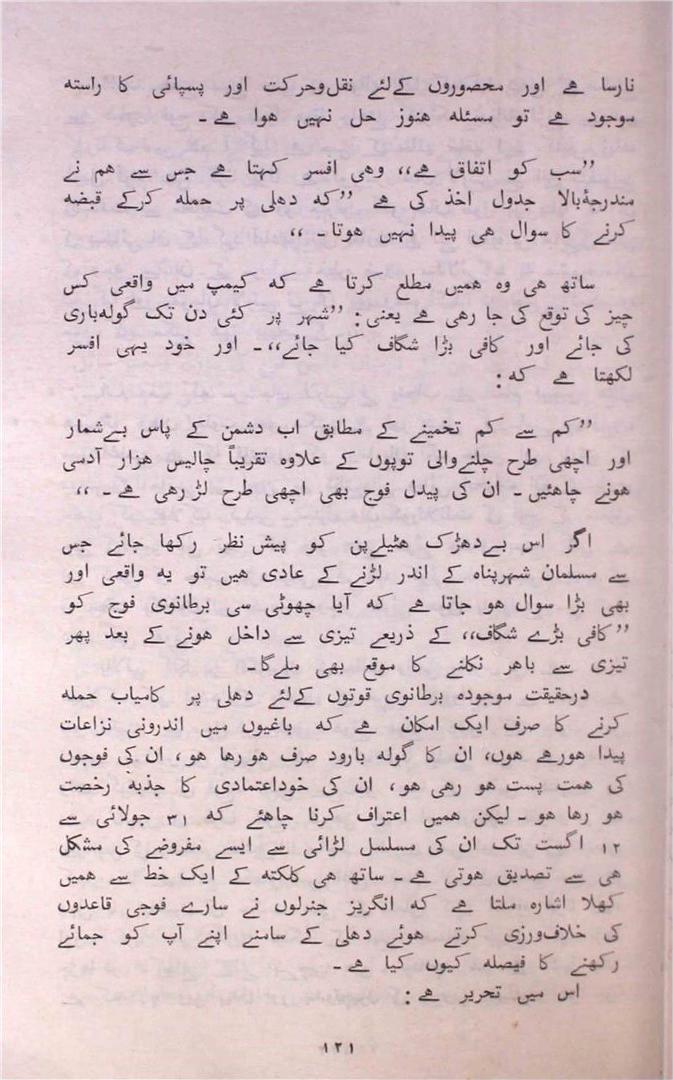 نارسا ہے اور محصوروں کےلئے نقل‌وحرکت اور پسپائی کا راستہ
موجود ہے تو مسئلہ ہنوز حل نہیں ہوا ہے۔
”سب کو اتفاق ہے،، وہی افسر کہتا ہے جس سے ہم نے
مندرجۂبالا جدول اخذ کی ہے ”کہ دہلی پر حملہ کرکے قبضہ
کرنے کا سوال ہی پیدا نہیں ہوتا۔،،
ساتھ ہی وہ ہمیں مطلع کرتا ہے کہ کیمپ میں واقعی کس
چیز کی توقع کی جا رہی ہے یعنی: ”شہر پر کئی دن تک گولہ‌باری
کی جائے اور کافی بڑا شگاف کیا جائے،،۔ اور خود یہی افسر
لکھتا ہے کہ:
”کم سے کم تخمینے کے مطابق اب دشمن کے پاس بےشمار
اور اچھی طرح چلنےوالی توپوں کے علاوہ تقریباً چالیس ہزار آدمی
ہونے چاہئیں۔ ان کی پیدل فوج بھی اچھی طرح لڑ رہی ہے۔،،
اگر اس بےدھڑک ہٹیلےپن کو پیش‌نظر رکھا جائے جس
سے مسلمان شہرپناہ کے اندر لڑنے کے عادی ہیں تو یہ واقعی اور
بھی بڑا سوال ہو جاتا ہے کہ آیا چھوٹی سی برطانوی فوج کو
”کافی بڑے شگاف،، کے ذریعے تیزی سے داخل ہونے کے بعد پھر
تیزی سے باہر نکلنے کا موقع بھی ملےگا۔
درحقیقت موجودہ برطانوی قوتوں کےلئے دہلی پر کامیاب حملہ
کرنے کا صرف ایک امکان ہے کہ باغیوں میں اندرونی نزاعات
پیدا ہورہے ہوں، ان کا گولہ بارود صرف ہو رہا ہو، ان کی فوجوں
کی ہمت پست ہو رہی ہو، ان کی خوداعتمادی کا جذبہ رخصت
ہو رہا ہو۔ لیکن ہمیں اعتراف کرنا چاہئے کہ ۳۱ جولائی سے
۱۲ اگست تک ان کی مسلسل لڑائی سے ایسے مفروضے کی مشکل
ہی سے تصدیق ہوتی ہے۔ ساتھ ہی کلکتہ کے ایک خط سے ہمیں
کھلا اشارہ ملتا ہے کہ انگریز جنرلوں نے سارے فوجی قاعدوں
کی خلاف‌ورزی کرتے ہوئے دہلی کے سامنے اپنے آپ کو جمائے
رکھنے کا فیصلہ کیوں کیا ہے۔
اس میں تحریر ہے:
۱۲۱